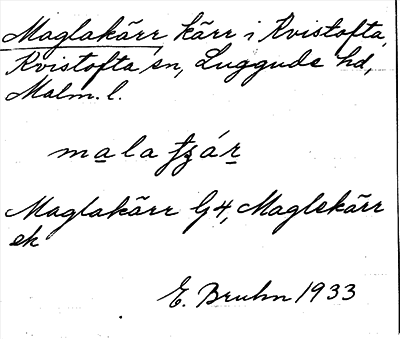 Maglakärr, kärr i Kvistofta,
Kvistofta sn, Luggude hd,
Malm. l.
Maglakärr G4, Maglekärr
ek
E. Bruhn 1933